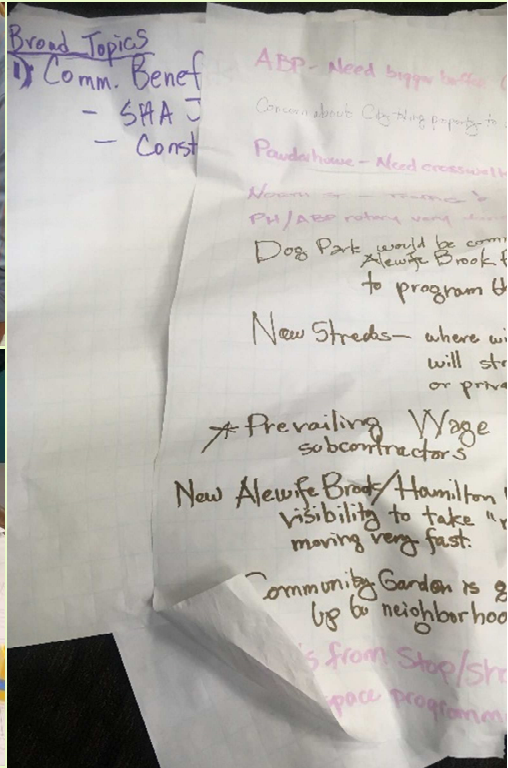 Broad Topics
1) Comm. Benef
- SHA J
- Const
ABP - Need bigger buffer
Concern about City
Powderhouse - Need crosswalk
PH/ABP rotary very
Dog Park would be comm
Alewife Brook
to program th
New Streets - where wi
will str
or priva
* Prevailing Wage
subcontractors
New Alewife Brook/Hamilton
visibility to take "r
moving very fast.
Community Garden is g
up by neighborhoo
s from Stop/Sho
space programm